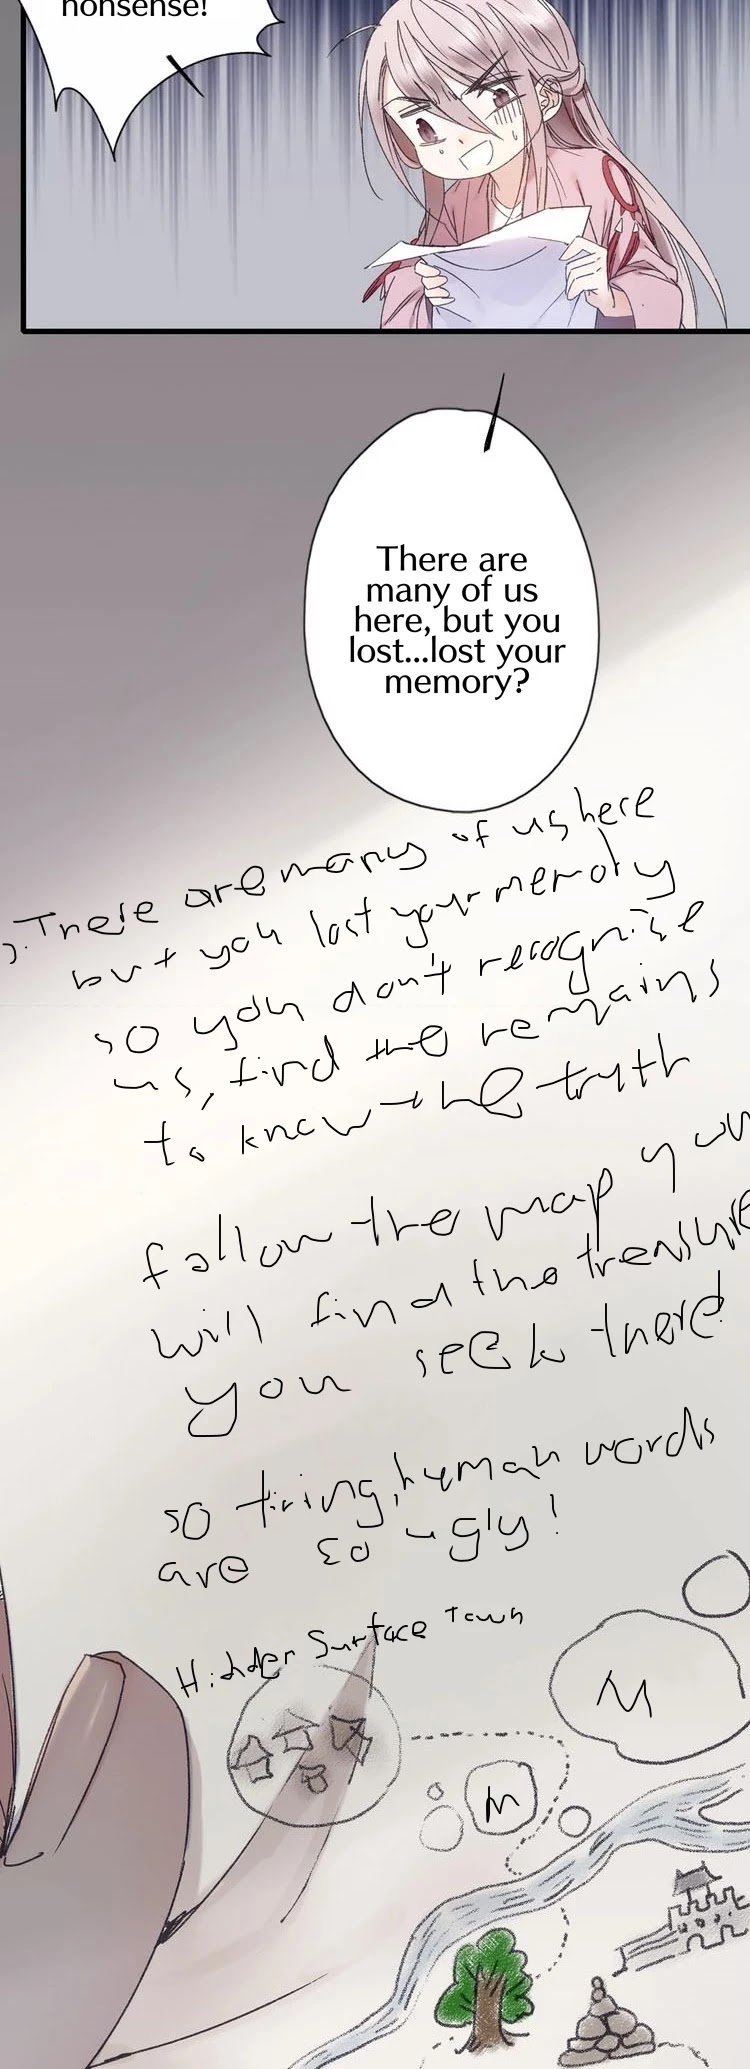 nonsense!
There are
many of us
here, but you
lost...lost your
memory?
There are many of us here
but you lost your memory
so you don't recognize
us, find the remains
to know the truth
follow the map you
will find the treasure
you seek there
so tiring, human words
are so ugly!
Hidden Surface Town
M
M